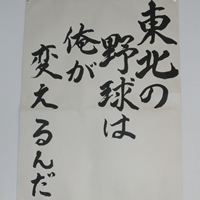 東北の
野球は
俺が
変えるんだ